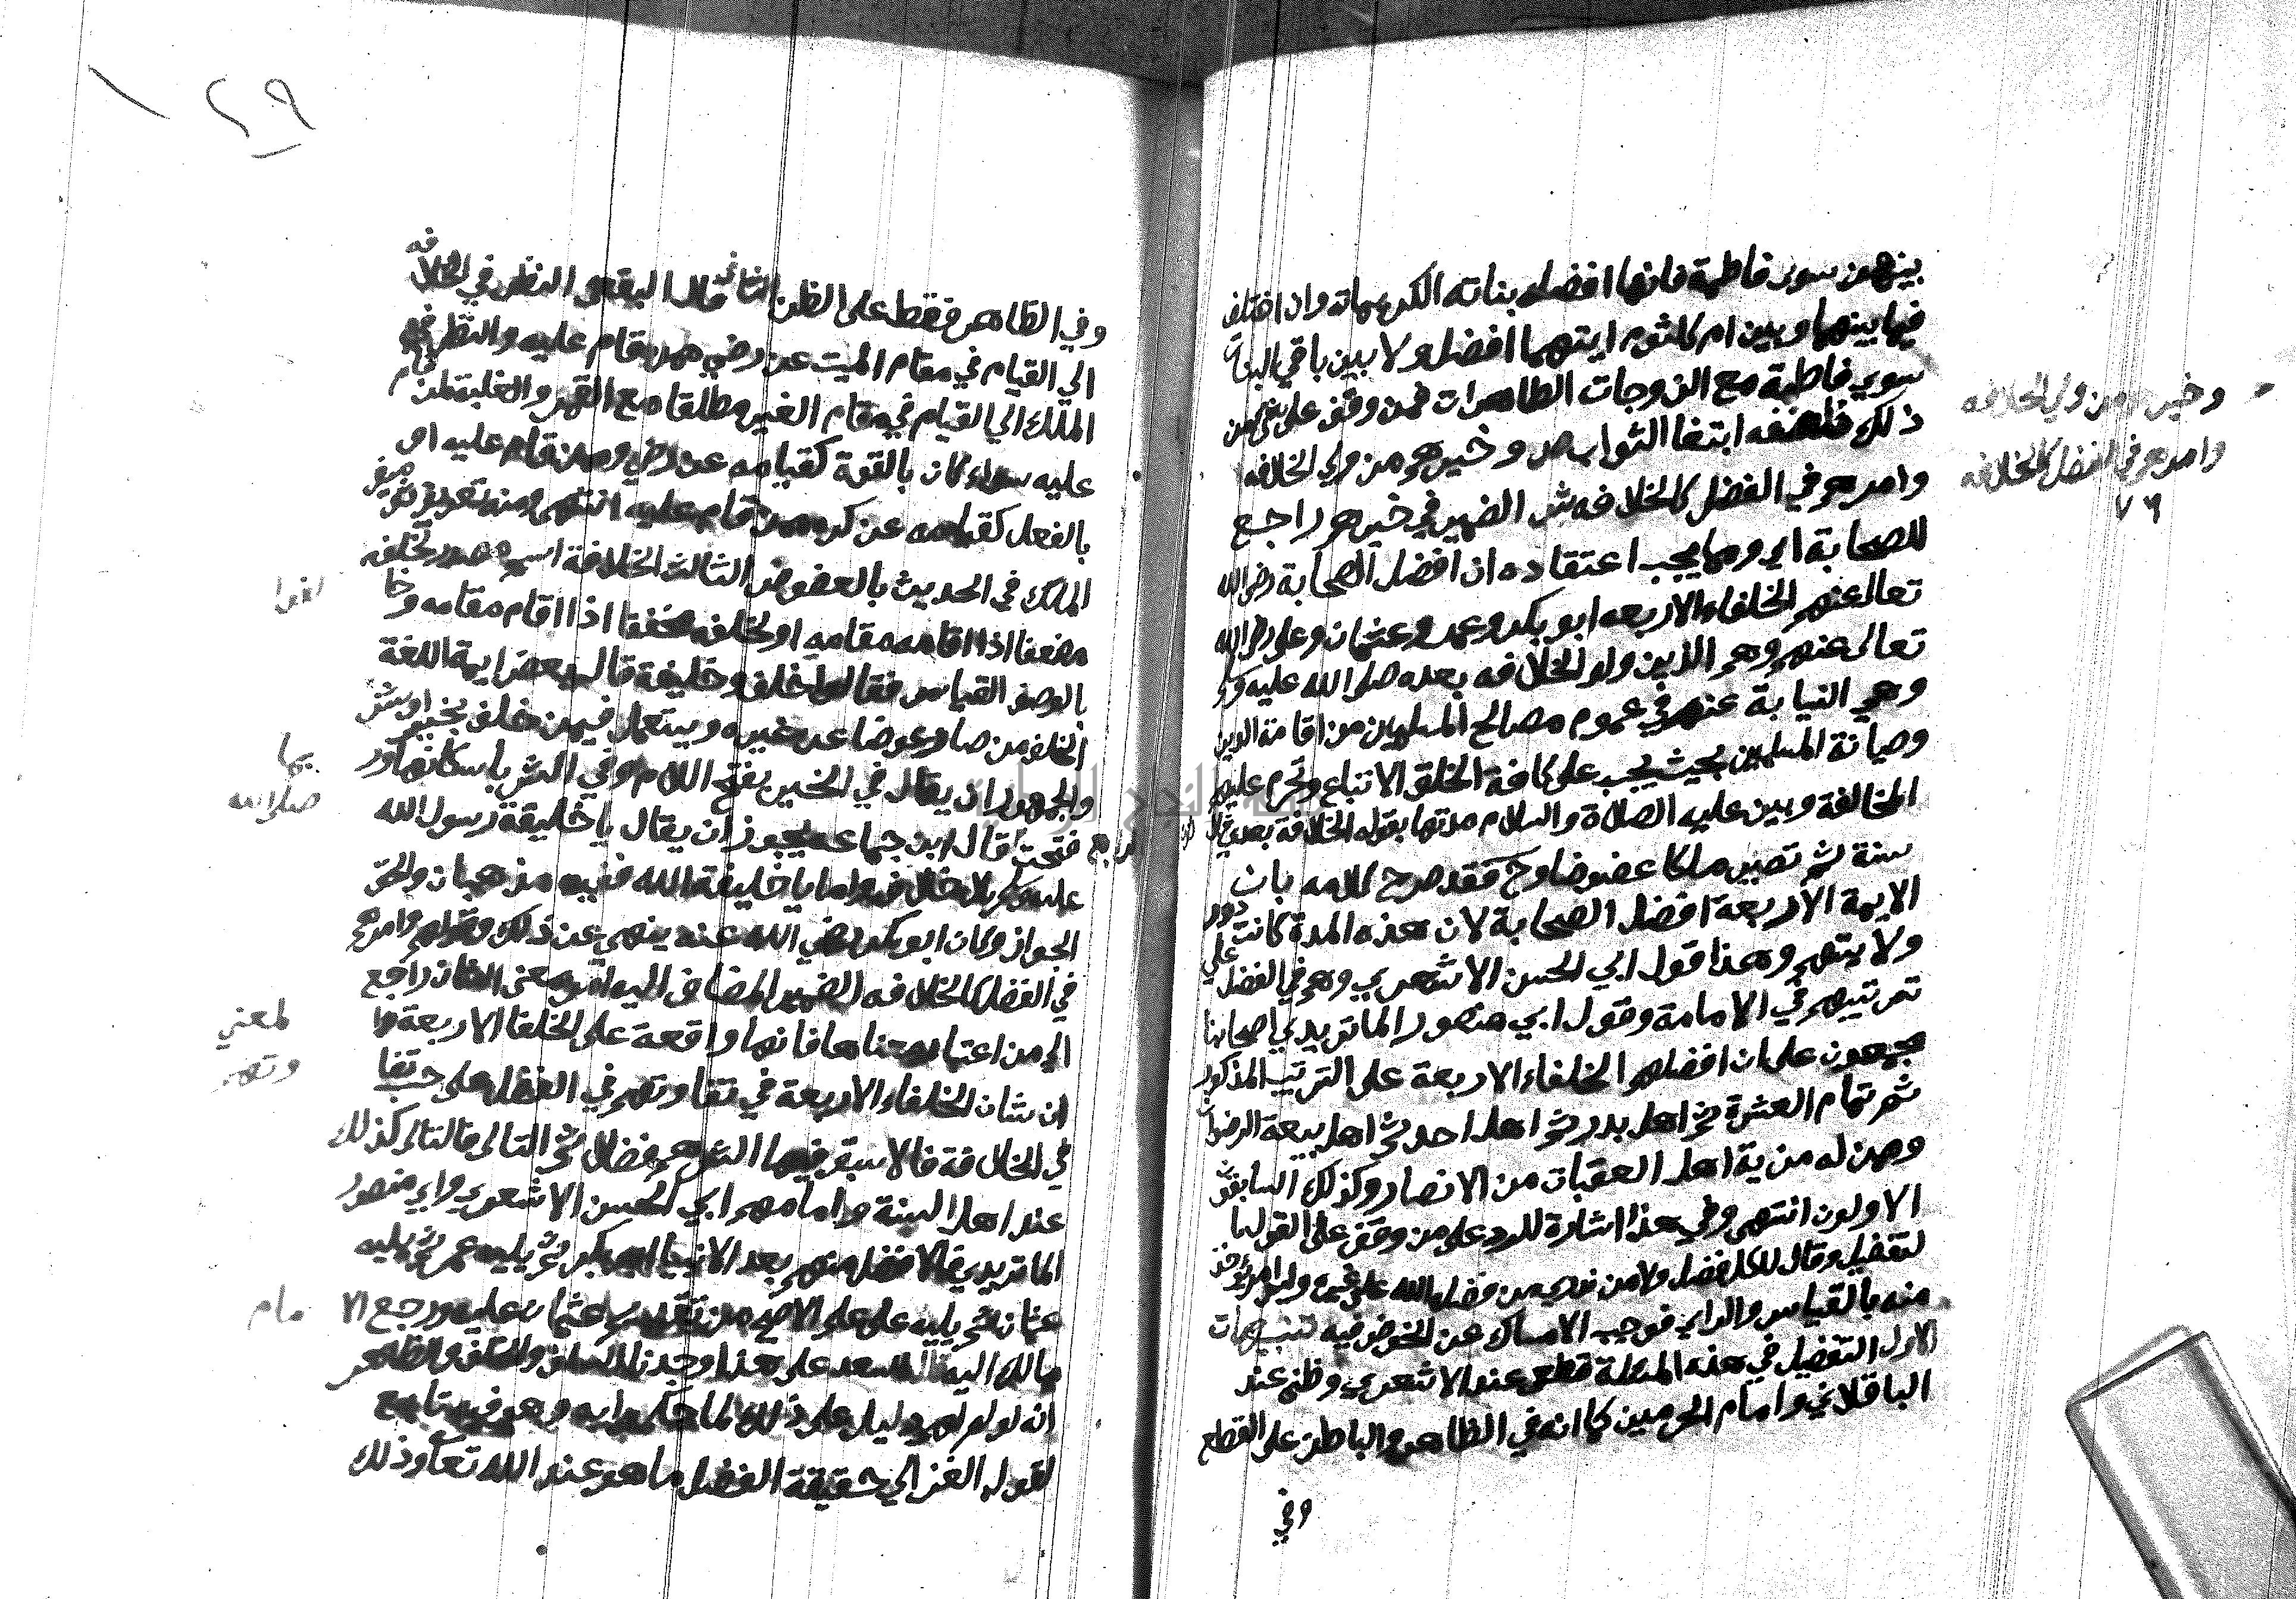 بينهن سوي فاطمة فانها افضل بناته الكريمات وان اختلف
فيما بينها وبين ام كلثوم ايتهما افضل ولا بين باقي البنات
سوي فاطمة مع الزوجات الطاهرات فمن وقف علي شي من
ذلك فليضفه ابتغا الثواب ص وخيرهم من ولي الخلافه
وامرهم في الفضل كالخلافه ش الضمير في خيرهم راجع
للصحابة اي ومما يجب اعتقاده ان افضل الصحابة رضي الله
تعالي عنهم الخلفاء الاربعه ابو بكر وعمر وعثمان وعلي رضي الله
تعالي عنهم وهم الذين ولو الخلافه بعده صلي الله عليه وسلم
وهي النيابة عنه في عموم مصالح المسلمين من اقامة الدين
وصيانة المسلمين بحيث يجب علي كافة الخلق الاتباع وتحرم عليهم
المخالفة وبين عليه الصلاة والسلام مدتها بقوله الخلافة بعدي ثلاثون
سنة ثم تصير ملكا عضوضا وح فقد صرح كلامه بان
الايمة الاربعة افضل الصحابة لان هذه المدة كانت دور
ولايتهم وهذا قول ابي الحسن الاشعري وهم في الفضل علي
ترتيبهم في الامامة وقول ابي منصور الماتريدي اصحابنا
مجمعون علي ان افضلهم الخلفاء الاربعة علي الترتيب المذكور
ثم تمام العشرة ثم اهل بدر ثم اهل احد ثم اهل بيعة الرضوان
وممن له مزية اهل العقبات من الانصار وكذلك السابقون
الاولون انتهي وفي هذا اشارة للرد علي من وقف علي القول با
لتفضيل وقال للكل فضل ولا من
منه بالقياس والراي فوجب الامساك عن الخوض فيه تنبيهات
الاول التفضيل في هذه المسئلة قطعي عند الاشعري وظني عند
الباقلاني وامام الحرمين كما انه في الظاهر والباطن علي القطع
وفي
وخيرهم من ولي الخلافه
وامرهم في الفضل كالخلافه
٧٦
١٢٩
وفي الظاهر فقط علي الظن الثاني قال البقاعي النظر في الخلافه
الي القيام في مقام الميت عن رضي ممن قام عليه والنظر في
الملك الي القيام في مقام الغير مطلقا مع القهر والغلبة لمن قام
عليه سواء كان بالقوة كقيامه عن رضي ممن قام عليه او
بالفعل كقيامه عن كره ممن قام عليه انتهي ومنه تعرف توصيف
الملك في الحديث بالعضوض الثالث الخلافة اسم مصدر لخلفه
مضعفا اذا اقامه مقامه او لخلفه مخففا اذا اقام مقامه وخا
بالوصف القياس فقالوا خلف وخليفة قال بعض ايمة اللغة
الخلف من صار عوضا عن غيره ويستعمل فيمن خلف بخير او بشر
والجمهور ان يقال في الخير بفتح اللام وفي الشر باسكانها ور
فتحت قال ابن جماعه يجوز ان يقال يا خليفة رسول الله
عليه وسلم بلا خلاف واما يا خليفة الله ففيه مذهبان والحق
الجواز وكان ابو بكر رضي الله عنه ينهي عن ذلك وقوله وامرهم
في الفضل كالخلافه الضمير المضاف اليه راجع
الي من اعتبار معناها فانها واقعة علي الخلفا الاربعة وا
ان شان الخلفاء الاربعة في تفاوتهم في الفضل علي حسب تفا
في الخلافة فالاسبق فيها اكثرهم فضلا ثم التالي فالتالي كذلك
عند اهل السنة وامامهم ابي الحسن الاشعري وابي منصور
الماتريدي فالافضل منهم بعد الانبيا ابو بكر ثم يليه عمر ثم يليه
عثمان ثم يليه علي علي الاصح من تقديم عثمان عليه ورجع الا
مالك اليه قال السعد علي هذا وجدنا السلف والخلف والظاهر
انه لو لم يكن لهم دليل علي ذلك لما حكموا به وهو فيه تابع
لقول الغزالي حقيقة الفضل ما هو عند الله تعا وذلك
بما
صلي الله
لمعني
وتهم
مام